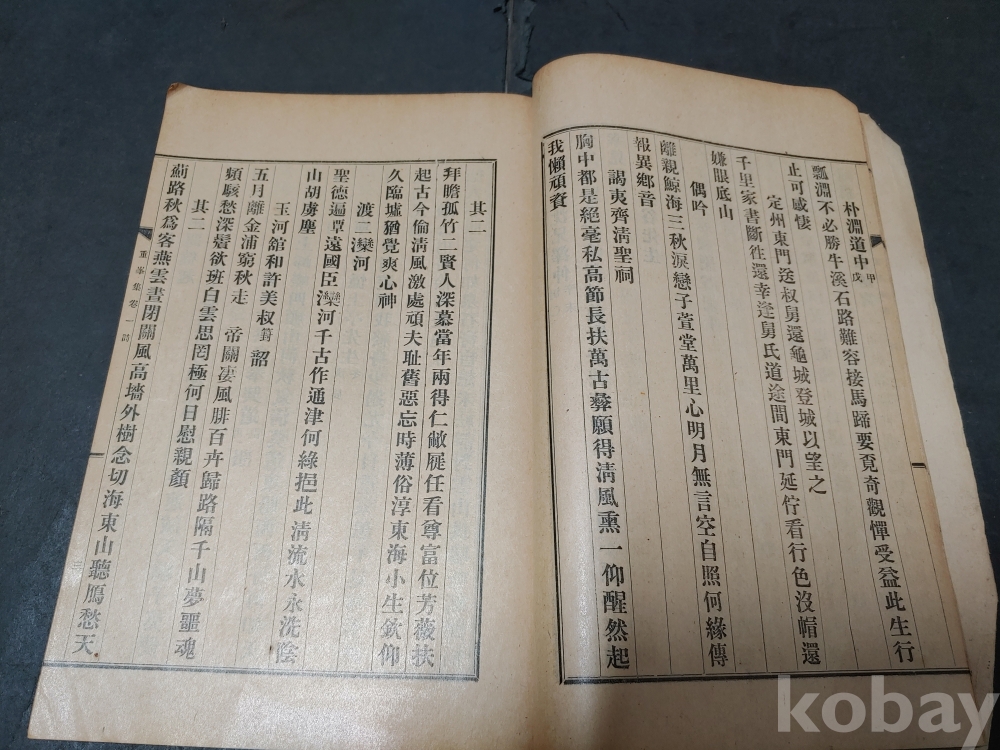 朴淵道中 甲戌
瓢淵不必勝牛溪石路難容接馬蹄要覓奇觀憚受益此生行
止可咸悽
定州東門送叔舅還龜城登城以望之
千里家書斷往還幸逢舅氏道途間東門延佇看行色沒帽還
嫌眼底山
偶吟
離親鯨海三秋淚戀子萱堂萬里心明月無言空自照何緣傳
報異鄉音
謁夷齊淸聖祠
胸中都是絕毫私高節長扶萬古彝願得淸風熏一仰醒然起
我懶頑資
其二
拜瞻孤竹二賢人深慕當年兩得仁敝屣任看尊富位芳薇扶
起古今倫淸風激處頑夫耻舊惡忘時薄俗淳東海小生欽仰
久臨墟猶覺爽心神
渡二灤河
聖德遍覃遠國臣灤河千古作通津何緣挹此淸流水永洗陰
山胡虜塵
玉河舘和許美叔篈韶
五月離金浦窮秋走 帝關凄風腓百卉歸路隔千山夢噩魂
頻駭愁深鬢欲班白雲思罔極何日慰親顏
其二
薊路秋爲客燕雲晝閉關風高墻外樹念切海東山聽鴈愁天
重峯集卷一 詩
kobay